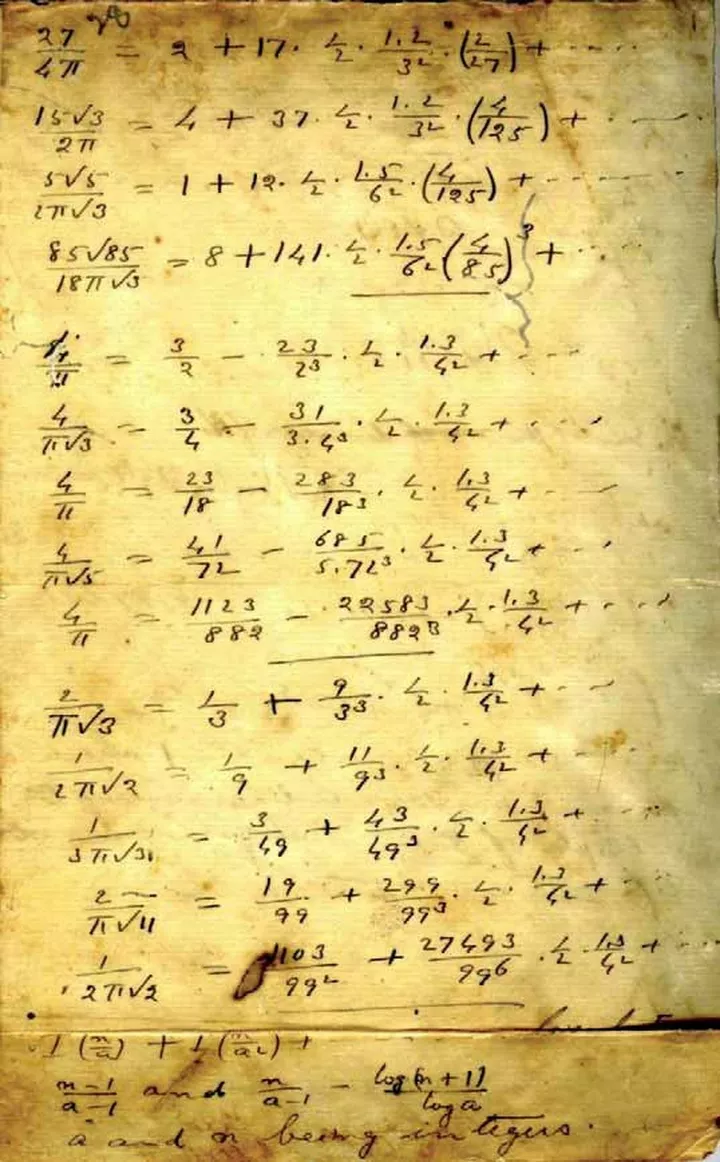 27/4π = 2 + 17 · 1/2 · 1.2/3² · (2/27) + ·····
15√3/2π = 4 + 37 · 1/2 · 1.2/3² · (4/125) + ·····
5√5/2π√3 = 1 + 12 · 1/2 · 1.5/6² · (4/125) + ·····
85√85/18π√3 = 8 + 141 · 1/2 · 1.5/6² (4/85)³ + ····
4/π = 3/2 − 23/2³ · 1/2 · 1.3/4² + ····
4/π√3 = 3/4 − 31/3.4³ · 1/2 · 1.3/4² + ····
4/π = 23/18 − 283/18³ · 1/2 · 1.3/4² + ····
4/π√5 = 41/72 − 685/5.72³ · 1/2 · 1.3/4² + ····
4/π = 1123/882 − 22583/882³ · 1/2 · 1.3/4² + ····
2/π√3 = 1/3 + 9/3³ · 1/2 · 1.3/4² + ····
1/2π√2 = 1/9 + 11/9³ · 1/2 · 1.3/4² + ····
1/3π√3 = 3/49 + 43/49³ · 1/2 · 1.3/4² + ····
2/π√11 = 19/99 + 299/99³ · 1/2 · 1.3/4² + ····
1/2π√2 = 1103/99² + 27493/99⁶ · 1/2 · 1.3/4² + ····
I (n/a) + I (n/a²) +
n−1/a−1 and n/a−1 − log(n+1)/log a
a and n being integers.